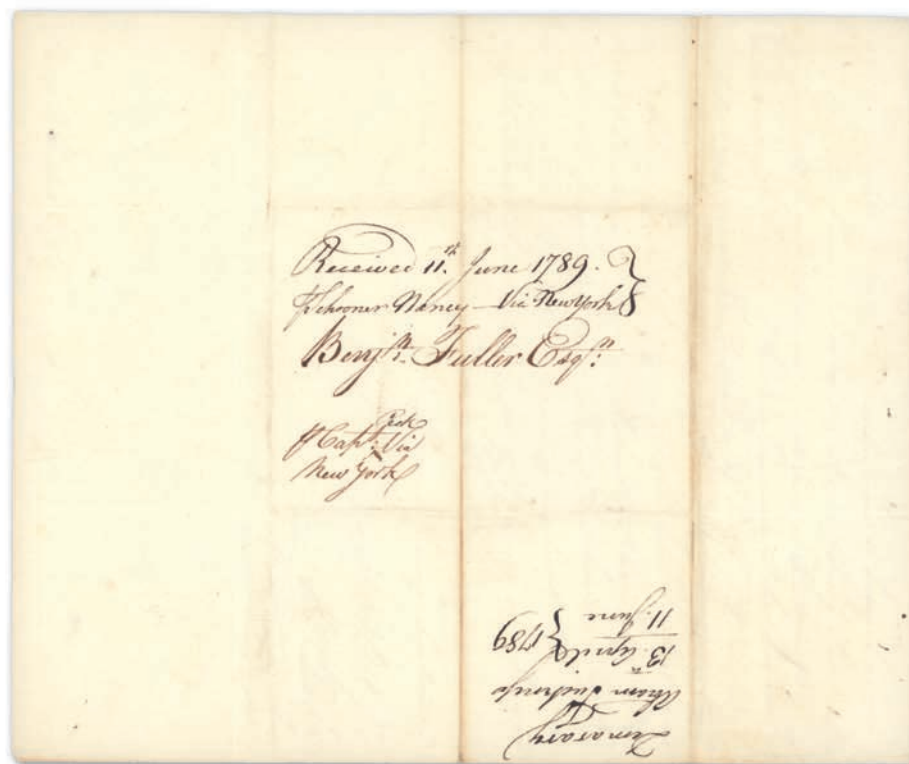 Received 11.th June 1789.
⅌ Schooner Nancy – Via New York
Benj.n Fuller Esq.r
⅌ Cap.t Via
New York
Demarary
13.th April
11. June } 1789